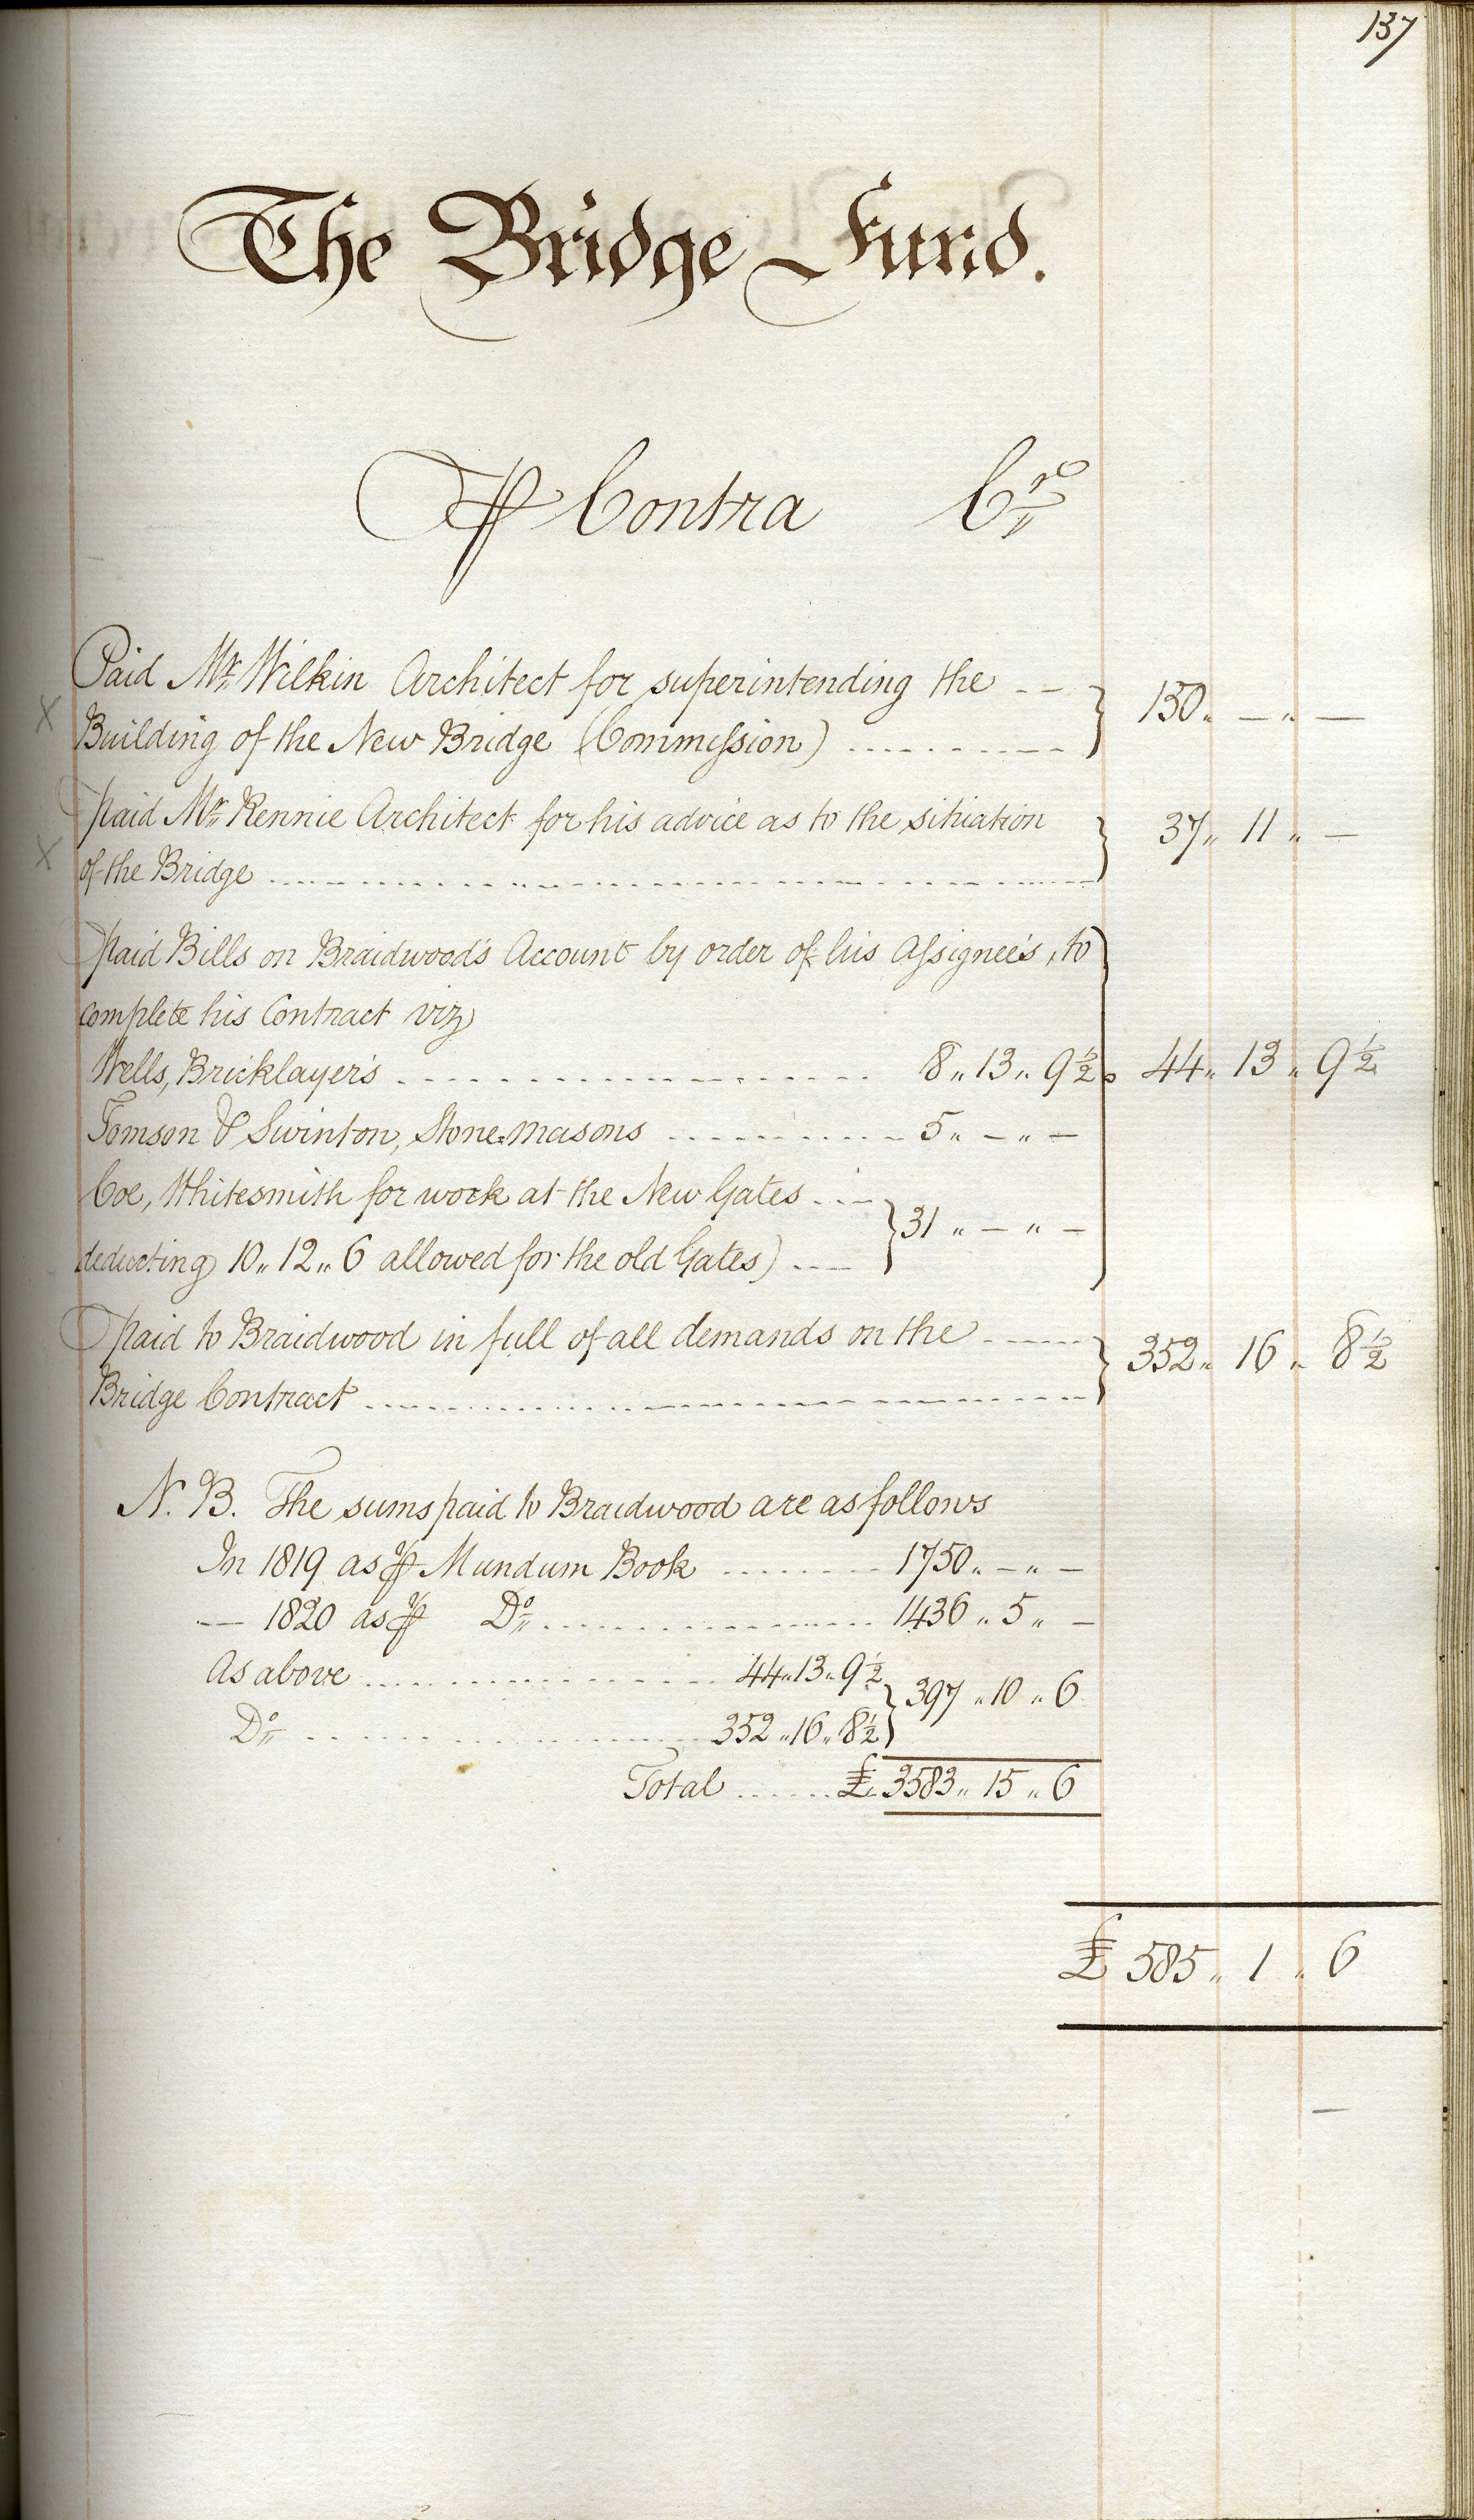 137
The Bridge Fund.
⅌ Contra Cr
Paid Mr. Wilkin Architect for superintending the
Building of the New Bridge (Commission) 150 „ — „ —
paid Mr. Rennie Architect for his advice as to the sitiation
of the Bridge 37 „ 11 „ —
paid Bills on Braidwood's Account by order of his Assignee's, to
complete his Contract viz
Wells, Bricklayer's 8 „ 13 „ 9½ 44 „ 13 „ 9½
Tomson & Swinton, Stone-masons 5 „ — „ —
Coe, Whitesmith for work at the New Gates
deducting 10 „ 12 „ 6 allowed for the old Gates) 31 „ — „ —
paid to Braidwood in full of all demands on the
Bridge Contract 352 „ 16 „ 8½
N. B. The sums paid to Braidwood are as follows
In 1819 as ⅌ Mundum Book 1750 „ — „ —
— 1820 as ⅌ Do. 1436 „ 5 „ —
As above 44 „ 13 „ 9½
397 „ 10 „ 6
Do. 352 „ 16 „ 8½
Total £ 3583 „ 15 „ 6
£ 585 „ 1 „ 6